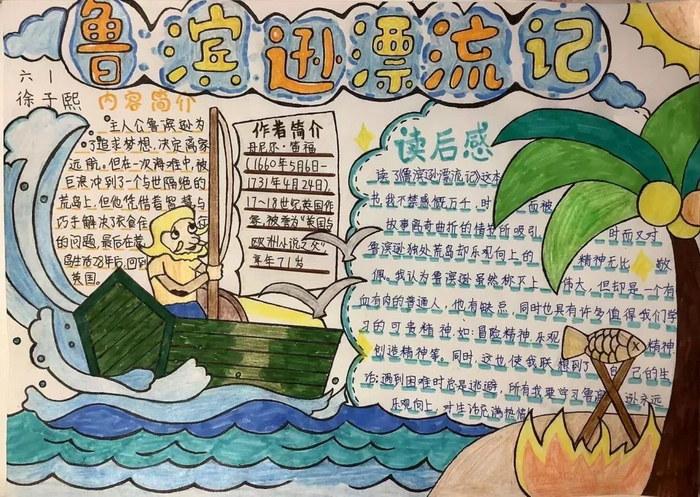 鲁滨逊漂流记
六 1
徐子熙
内容简介
主人公鲁滨逊为
了追求梦想,决定离家
远航。但在一次海难中,被
巨浪冲到了一个与世隔绝的
荒岛上,但他凭借着智慧与
巧手解决了衣食住行
的问题,最后在荒
岛生活28年后,回到
英国。
作者简介
丹尼尔·笛福
(1660年5月6日-
1731年4月24日),
17~18世纪英国作
家,被誉为"英国与
欧洲小说之父"
享年71岁
读后感
读了《鲁滨逊漂流记》这本
书,我不禁感慨万千,时而被
故事离奇曲折的情节所吸引 时而又对
鲁滨逊独处荒岛却乐观向上的 精神无比 敬
佩。我认为鲁滨逊虽然称不上 伟大,但却是一个有
血有肉的普通人,他有缺点,同时也具有许多值得我们学
习的可贵精神,如:冒险精神,乐观 精神
创造精神等。同时,这也使我联想到了 自己的生
活:遇到困难时总是逃避,所有我要学习鲁滨逊永远
乐观向上,对生活充满热情